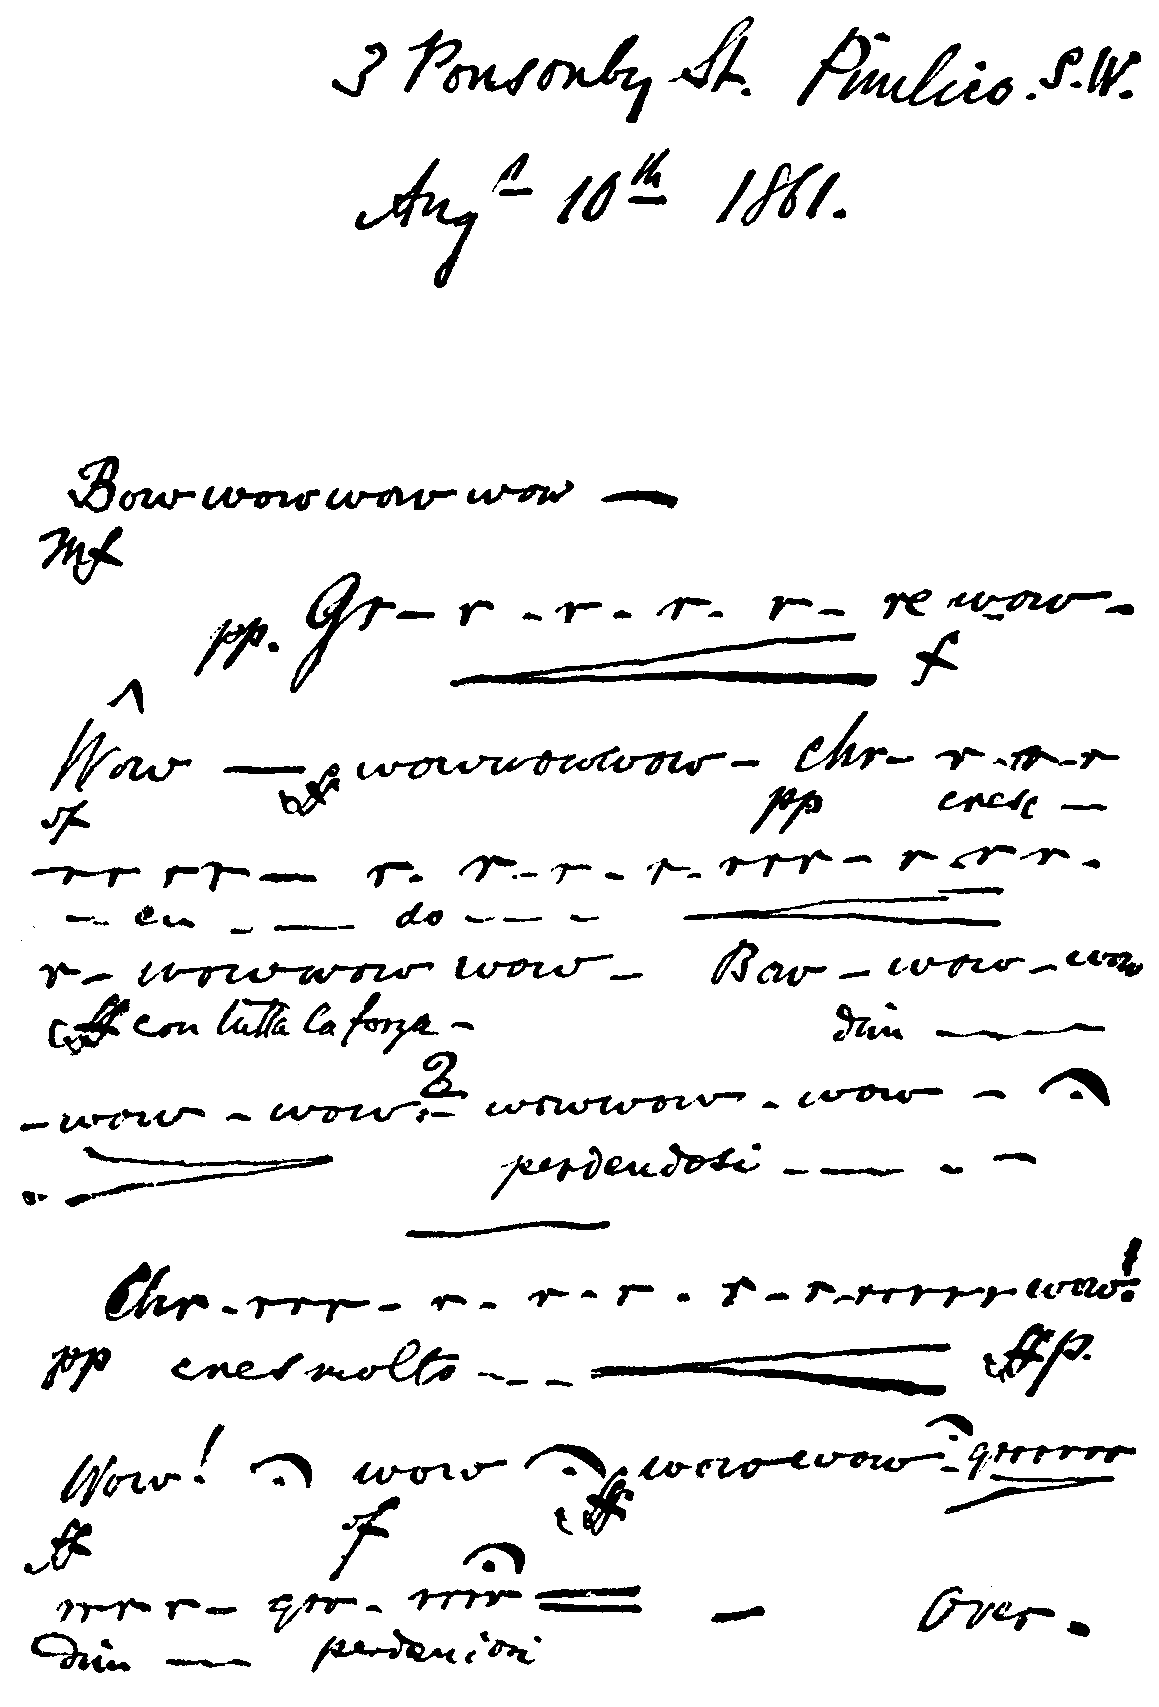 3 Ponsonby St. Pimlico. S.W.
Augst 10th 1861.
Bow wow wow wow wow —
mf
Gr — r - r - r - r - re wow -
pp. f
Wow — wowwowwow - chr - r - rr - r
sf ff pp cresc —
rr rr — r - r - r - r - rrr - r - r r -
- - en - — do - - - -
r - wowwow wow - Bow - wow - wow
ff con tutta la forza - dim ———
- wow - wow - wowwow - wow -
perdendosi - — - -
Chr - rrr - r - r - r - r - rrrrrrr wow!
pp cres molto - - - ffp.
Wow! wow wowwow - grrrrrr
ff sf ff
rrr r - grr - rrrr — Over.
dim — perdendosi